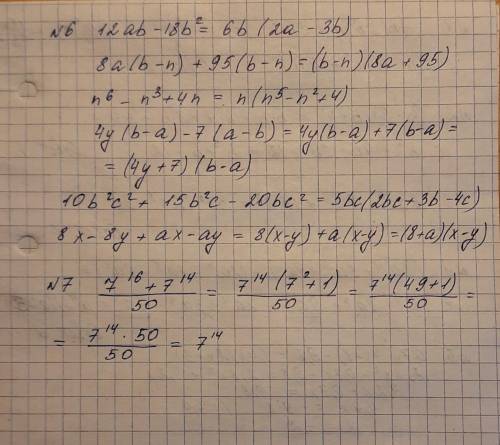 №6 12ab - 18b² = 6b (2a - 3b)
8a(b-n) + 95(b-n) = (b-n)(8a + 95)
n⁶ - n³ + 4n = n(n⁵ - n² + 4)
4y(b-a) - 7(a-b) = 4y(b-a) + 7(b-a) =
= (4y + 7)(b-a)
10b²c² + 15b²c - 20bc² = 5bc(2bc + 3b - 4c)
8x - 8y + ax - ay = 8(x-y) + a(x-y) = (8+a)(x-y)
№7 (7¹⁶ + 7¹⁴)/50 = 7¹⁴(7² + 1)/50 = 7¹⁴(49 + 1)/50 =
= 7¹⁴ · 50/50 = 7¹⁴